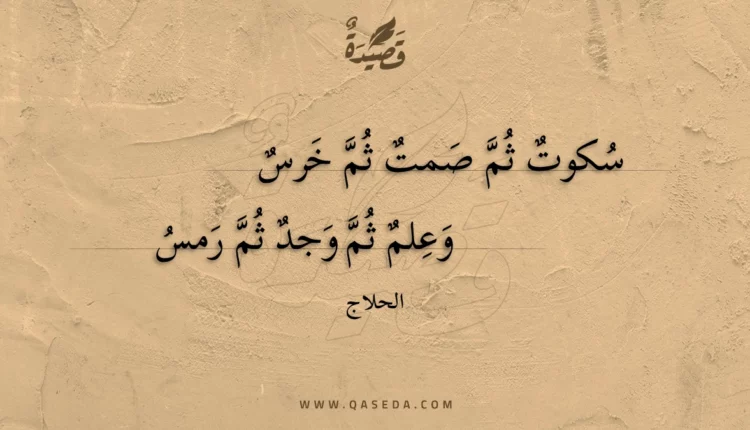 قَصِيْدَةٌ
سُكوتٌ ثُمَّ صَمتٌ ثُمَّ خَرسٌ
وَعِلمٌ ثُمَّ وَجدٌ ثُمَّ رَمسُ
الحلاج
WWW.QASEDA.COM